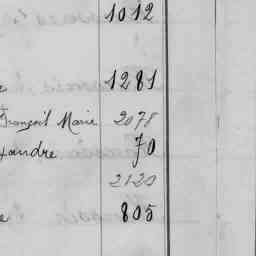 1012
e 1281
François Marie 2078
xandre 70
2120
e 805